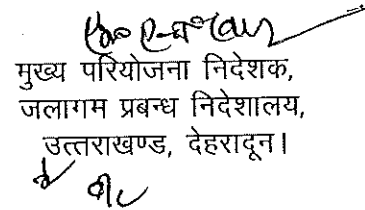 मुख्य परियोजना निदेशक,
जलागम प्रबन्ध निदेशालय,
उत्तराखण्ड, देहरादून।